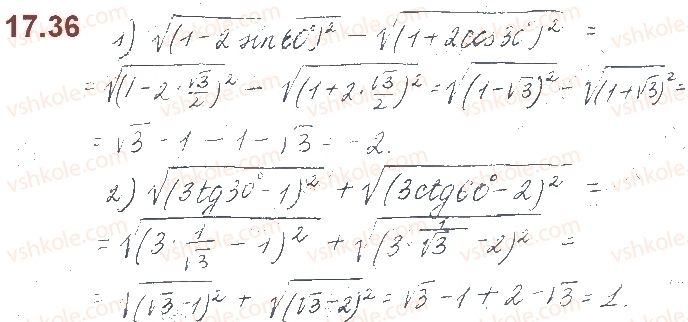 17.36
1) √(1-2sin60°)² - √(1+2cos30°)² =
= √(1-2·√3/2)² - √(1+2·√3/2)² = √(1-√3)² - √(1+√3)² =
= √3 - 1 - 1 - √3 = -2.
2) √(3tg30°-1)² + √(3ctg60°-2)² =
= √(3·1/√3 - 1)² + √(3·1/√3 - 2)² =
= √(√3-1)² + √(√3-2)² = √3 - 1 + 2 - √3 = 1.